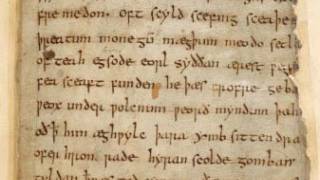 fre medon. oft scyld scefing sceaþe
þreatum monegū mægþum meodo setla
of teah egsode eorl syððan ærest
fea sceaft funden he þæs frofre geba
weox under wolcnum weorð myndum þah
oð ꝥ him æghwylc þara ymb sittendra
ofer hron rade hyran scolde gomban
gyldan